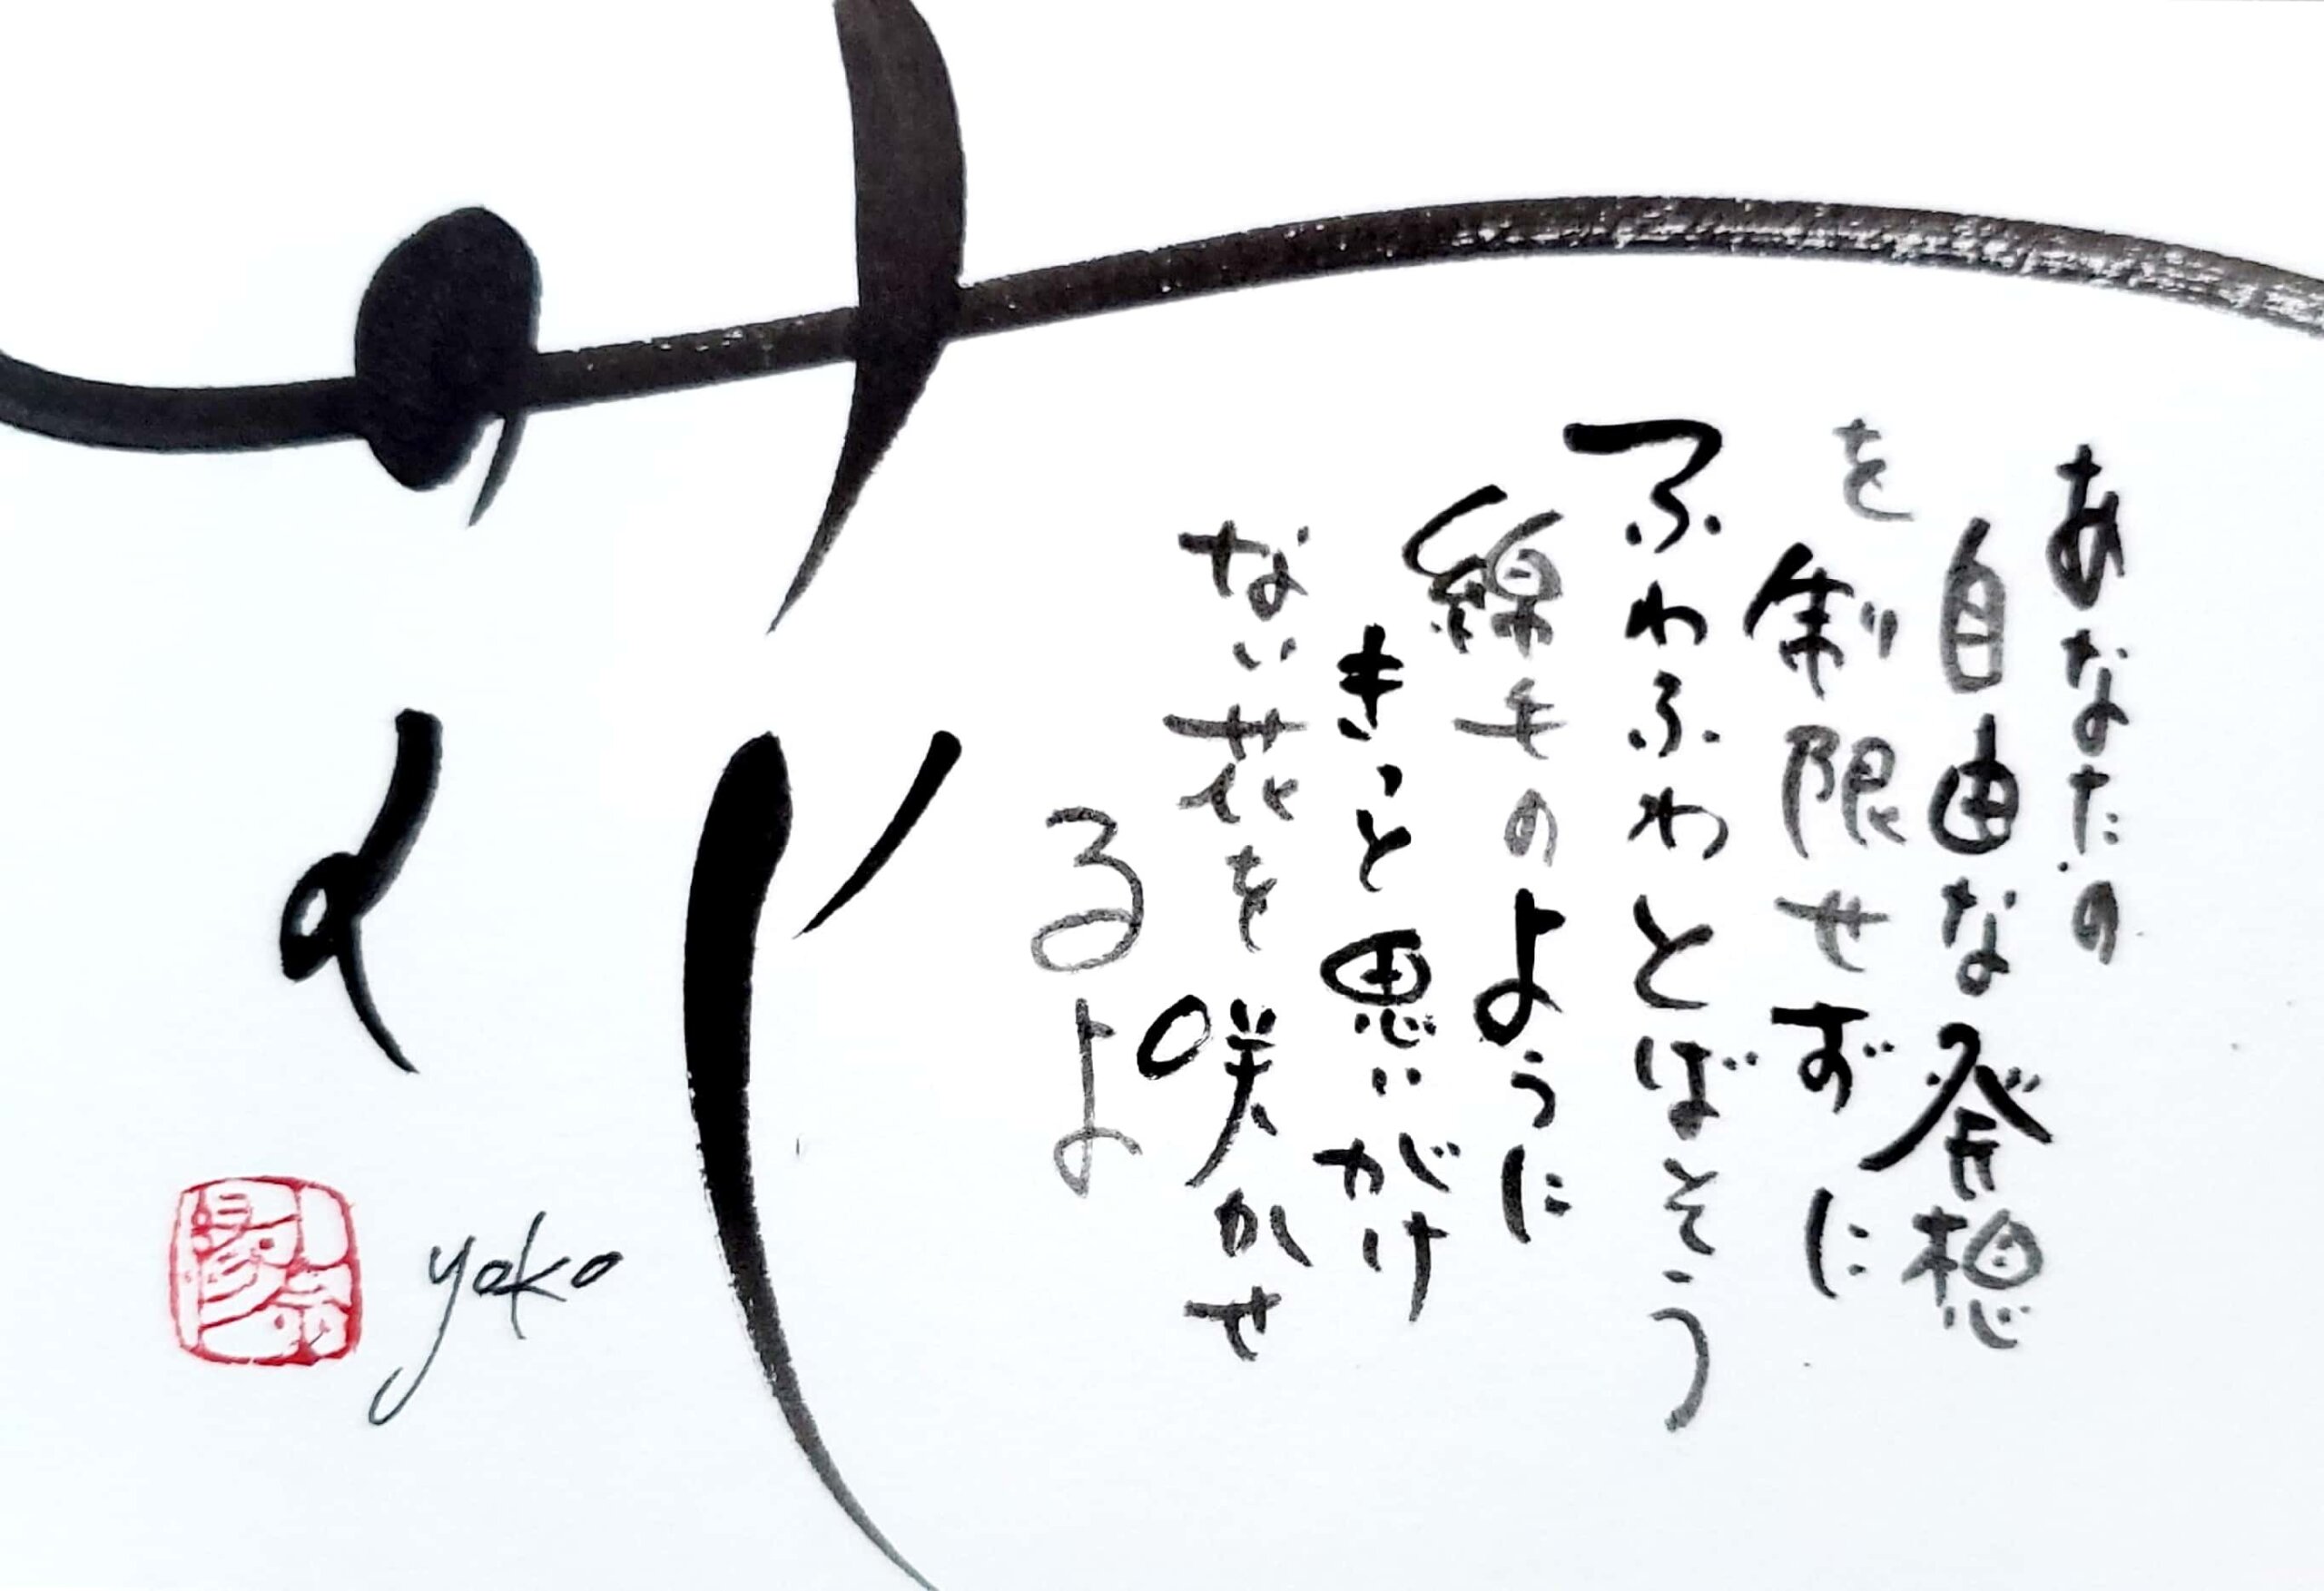 あなたの
自由な発想
を制限せずに
ふわふわとばそう
綿毛のように
きっと思いがけ
ない花を咲かせ
るよ
yoko